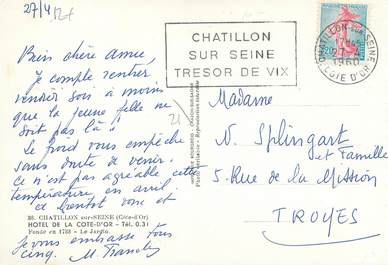 27/4
Bien chère amie,
Je compte rentrer
vendredi soir à moins
que la jeune fille ne
soit pas là !
Le froid vous empêche
sans doute de venir.
ce n'est pas agréable cette
température en avril.
à bientôt vous et
28. CHATILLON sur-SEINE (Côte-d'Or)
HOTEL DE LA COTE-D'OR - Tél. 0.31
Fondé en 1738 - Le Jardin
Je vous embrasse tous
cinq.
21
CHATILLON
SUR SEINE
TRESOR DE VIX
CHATILLON-SUR-SEINE
1960
COTE D'OR
Madame
V. Splingart
et Famille
5 Rue de la Mission
TROYES